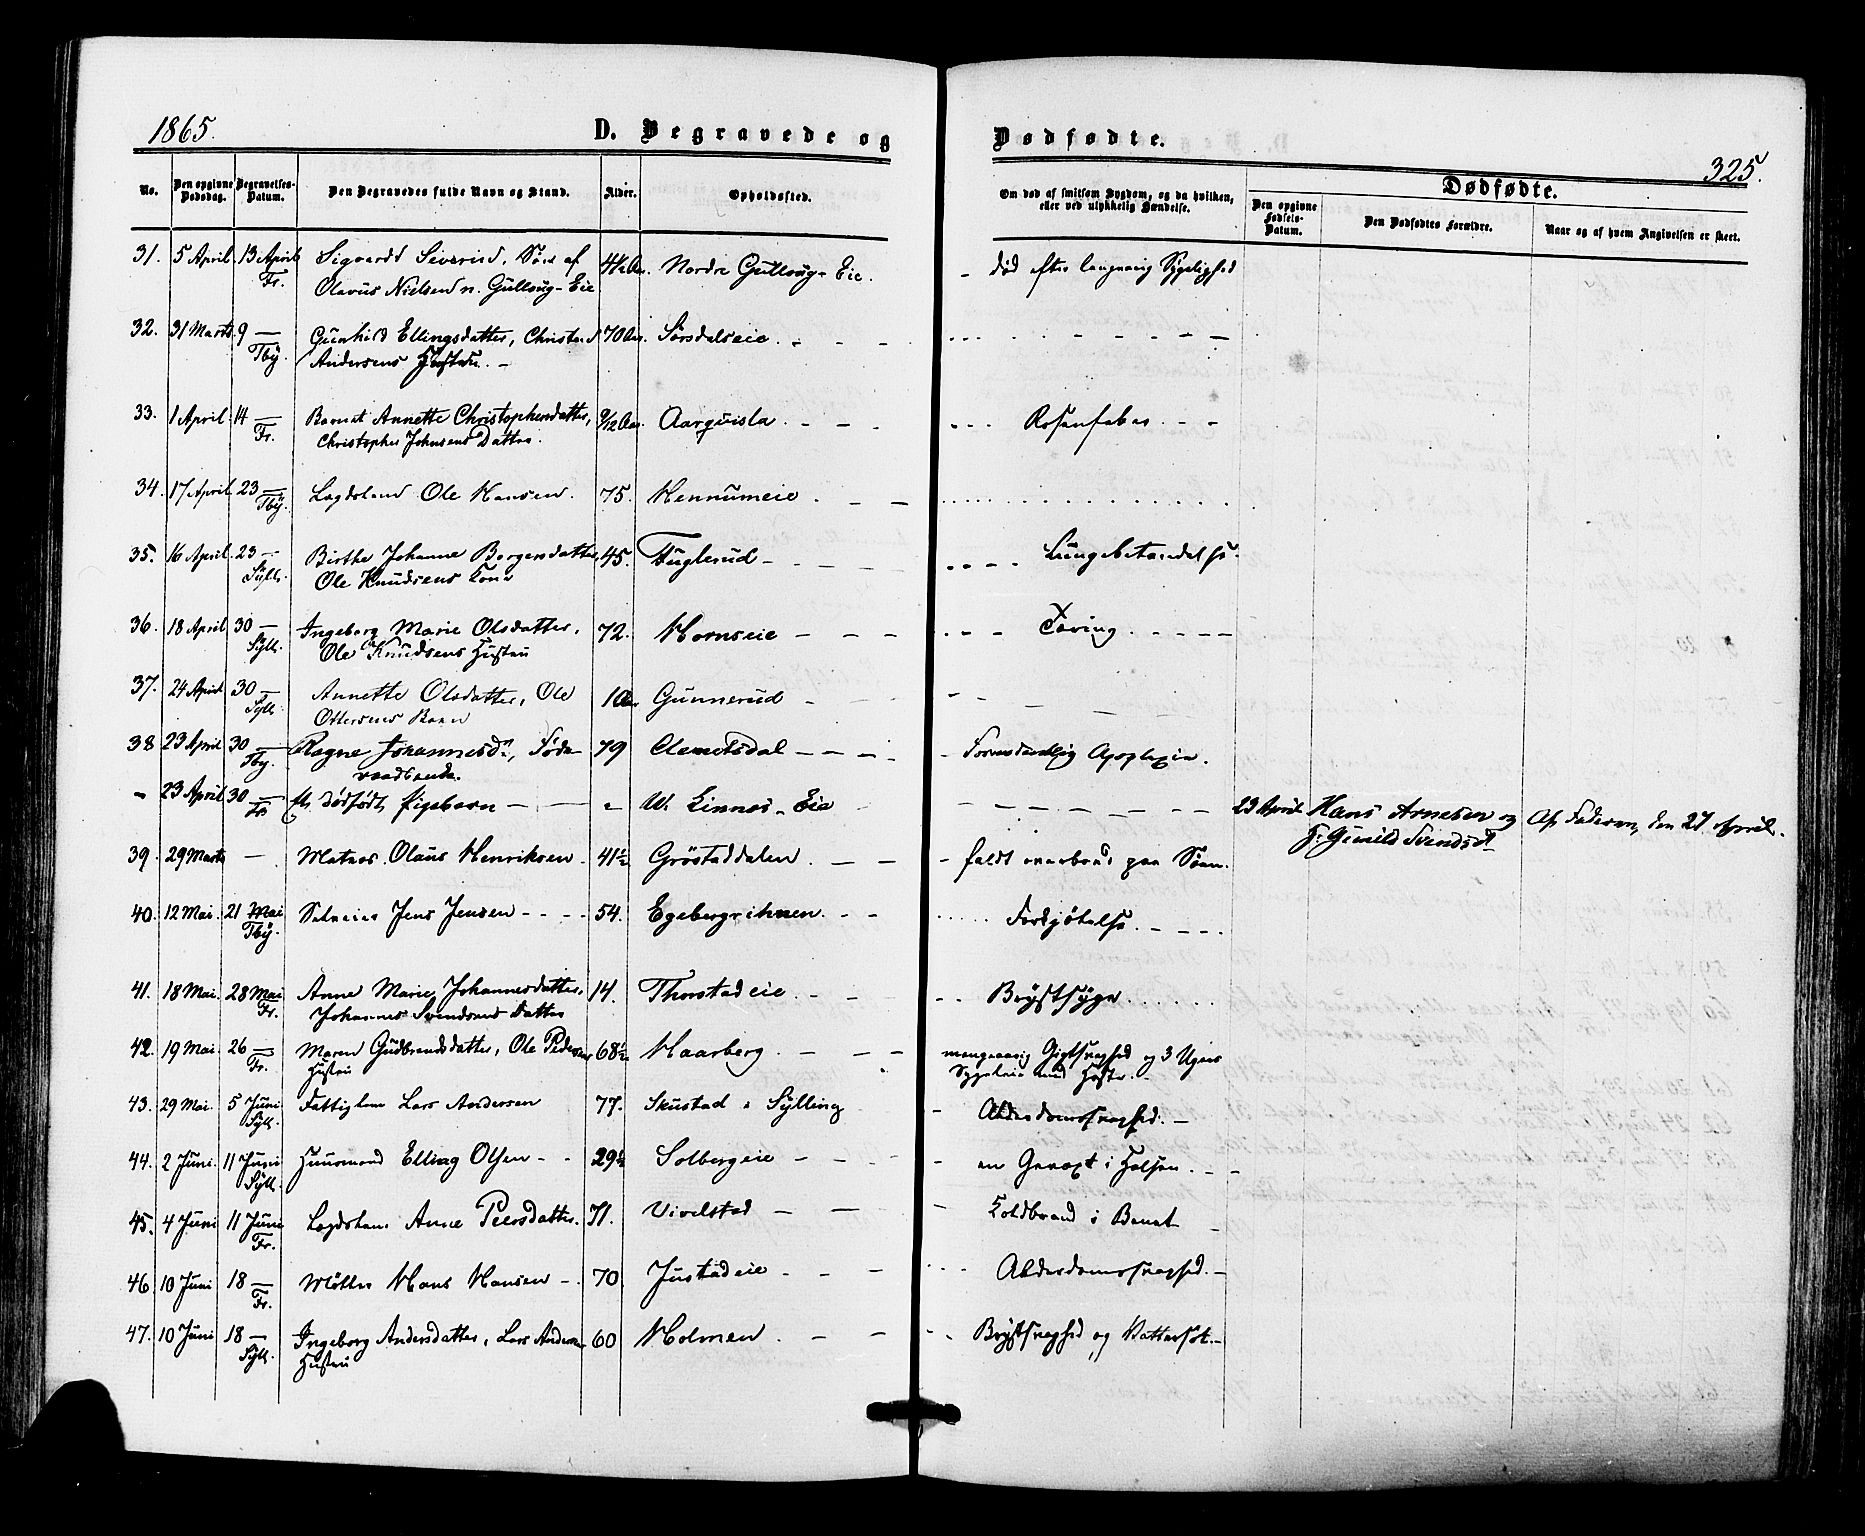 1865.
D. Begravede og
Dødfødte.
325.
No.
Den opgivne Dødsdag.
Begravelses-Datum.
Den Begravedes fulde Navn og Stand.
Alder.
Opholdssted.
Om død af smitsom Sygdom, og da hvilken, eller ved ulykkelig Hændelse.
Dødfødte.
Den opgivne Fødsels-Datum.
Den Dødfødtes Forældre.
Naar og af hvem Angivelsen er skeet.
31. 5 April. 13 April Sigvardt Severin, Søn af 4½ Aar. Nordre Gullaug-Eie. - død efter langvarig Sygelighed
Fr. Olavus Nielsen n. Gullaug-Eie
32. 31 Marts 9 — Gunhild Ellingsdatter, 70 Aar. Sørsdalseie.
Tby. Andersens Hustru. -
33. 1 April 14 — Barnet Annette Christophersdatter, 9/12 Aar. Aarquisla - - - Rosenfeber - -
Fr. Christopher Johnsens Datter.
34. 17 April 23 — Lægdslem Ole Hansen. 75. Hennumeie
Tby.
35. 16 April 23 — Birthe Johanne Borgersdatter, 45. Huglerud - Lungebetændelse.
Syll. Ole Knudsens Kone
36. 18 April 30 — Ingeborg Marie Olsdatter, 72. Hornseie - - - Tæring.
Syll. Ole Knudsens Hustru
37. 24 April 30 — Annette Olsdatter, Ole 1 Aar Gunnerud
Syll. Ottersens Barn
38 23 April 30 — Ragne Johannesd., Føde- 79 Clemetsdal - - - - Formodentlig Apoplexie.
Tby. raadsenke.
" 23 April 30 — Et dødfødt Pigebarn - — " W. Linnes-Eie 23 April Hans Arnesen og Af Faderen, den 27 April.
Fr. Gunild Svendsd.
39. 29 Marts — Matros Olaus Henriksen 41½ Grøstaddalen. - faldt overbord paa Søen.
40. 12 Mai. 21 Mai Jens Jensen - - - 54. Forkjølelse.
Tby.
41. 18 Mai. 28 Mai Anne Marie Johannesdatter, 14. Thorstadeie - - Brystsyge
Fr. Johannes Svendsens Datter
42. 19 Mai 26 — Maren Gudbrandsdatter, Ole Pedersens 68½ Haarberg. - - mangeaarig Gigtsvaghed og 3 Ugers
Fr. Hustru Sygeleie med Hoste. -
43. 29 Mai. 5 Juni Fattiglem Lars Andersen 77. Skustad i Sylling - Alderdomssvaghed. -
Syll.
44. 2 Juni. 11 Juni Huusmand Elling Olsen - - 29½ Solbergeie - en Gevæxt i Halsen. - -
Syll.
45. 4 Juni 11 Juni Lægdslem Anne Peersdatter. 71. Vivelstad - — - Koldbrand i Benet
Fr.
46. 10 Juni 18 — Møller Hans Hansen - 70 Justadeie - - - Alderdomssvaghed. -
Fr.
47. 10 Juni 18 — Ingeborg Andersdatter, Lars Andersens 60 Holmen. - - Brystsvaghed og Vattersot. -
Syll. Hustru